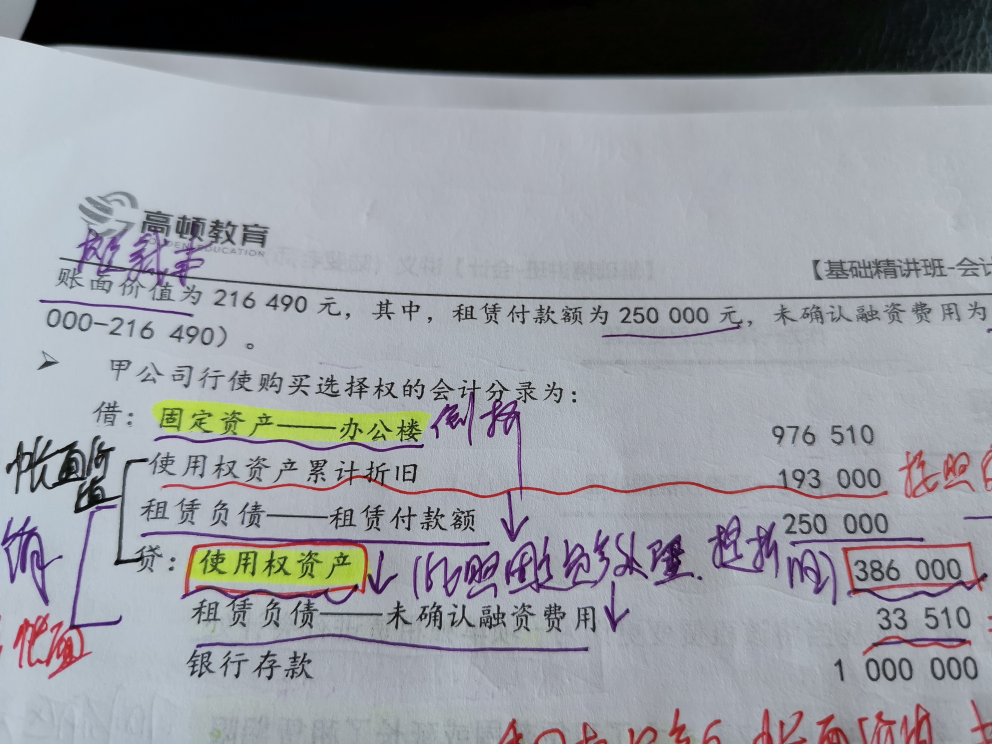 高顿教育
GOLDEN EDUCATION
【基础精讲班-会计
账面价值为 216 490 元，其中，租赁付款额为 250 000 元，未确认融资费用为
000-216 490）。
➢ 甲公司行使购买选择权的会计分录为：
借：固定资产——办公楼 倒挤 976 510
账面价值 使用权资产累计折旧 193 000 按照
租赁负债——租赁付款额 250 000
贷：使用权资产 386 000
租赁负债——未确认融资费用 33 510
账面
银行存款 1 000 000
账面价值